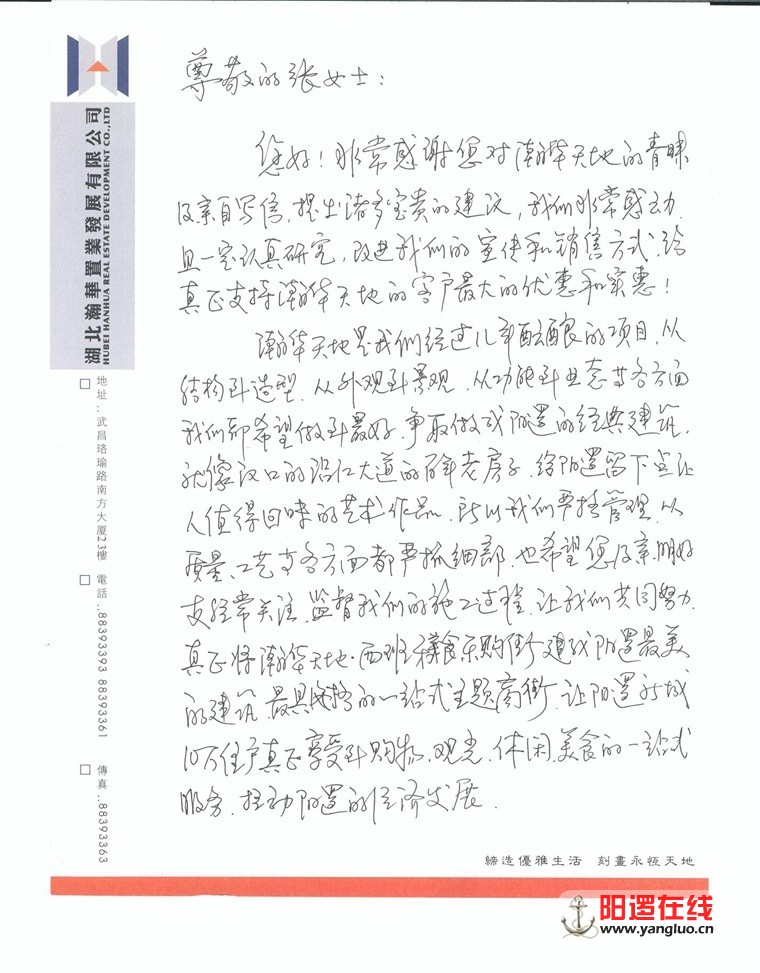 湖北瀚華置業發展有限公司
HUBEI HANHUA REAL ESTATE DEVELOPMENT CO.,LTD
地址:武昌珞瑜路南方大厦23樓
電話:88393393 88393361
傳真:88393363
尊敬的张女士:
您好!非常感谢您对瀚华天地的青睐
及亲自写信,提出诸多宝贵的建议,我们非常感动,
且一定认真研究,改进我们的宣传和销售方式,给
真正支持瀚华天地的客户最大的优惠和实惠!
瀚华天地是我们经过几年酝酿的项目,从
结构到造型,从外观到景观,从功能到业态等各方面
我们都希望做到最好,争取做成阳逻的经典建筑,
就像汉口的沿江大道的百年老房子,给阳逻留下些让
人值得回味的艺术作品,所以我们严格管理,从
质量、工艺等各方面都严抓细部,也希望您及亲朋好
友经常关注、监督我们的施工过程,让我们共同努力,
真正将瀚华天地·西班牙美食乐购街建成阳逻最美
的建筑,最具的一站式主题商街,让阳逻新城
10万住户真正享受到购物、观光、休闲、美食的一站式
服务,拉动阳逻的经济发展。
締造優雅生活 刻畫永恆天地
阳逻在线
www.yangluo.cn